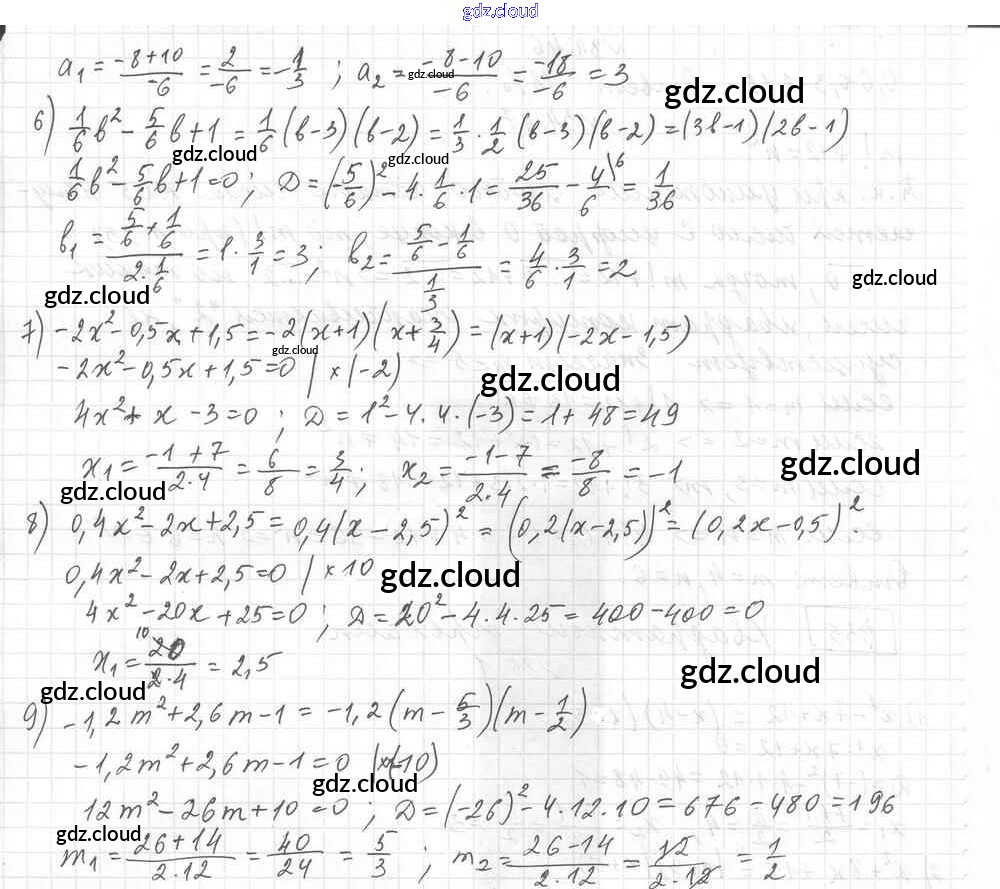 gdz.cloud
a₁ = (-8+10)/(-6) = 2/(-6) = -1/3 ; a₂ = (-8-10)/(-6) = (-18)/(-6) = 3
gdz.cloud
gdz.cloud
6) 1/6 b² - 5/6 b + 1 = 1/6 (b-3)(b-2) = 1/3 · 1/2 (b-3)(b-2) = (3b-1)(2b-1)
gdz.cloud
gdz.cloud
1/6 b² - 5/6 b + 1 = 0 ; D = (-5/6)² - 4 · 1/6 · 1 = 25/36 - 4\6/6 = 1/36
b₁ = (5/6 + 1/6)/(2 · 1/6) = 1 · 3/1 = 3 ; b₂ = (5/6 - 1/6)/(1/3) = 4/6 · 3/1 = 2
gdz.cloud
gdz.cloud
7) -2x² - 0,5x + 1,5 = -2(x+1)(x + 3/4) = (x+1)(-2x-1,5)
gdz.cloud
-2x² - 0,5x + 1,5 = 0 | ×(-2)
gdz.cloud
4x² + x - 3 = 0 ; D = 1² - 4 · 4 · (-3) = 1 + 48 = 49
x₁ = (-1+7)/(2·4) = 6/8 = 3/4 ; x₂ = (-1-7)/(2·4) = -8/8 = -1
gdz.cloud
gdz.cloud
8) 0,4x² - 2x + 2,5 = 0,4(x - 2,5)² = (0,2(x-2,5))² = (0,2x - 0,5)²
0,4x² - 2x + 2,5 = 0 | ×10
gdz.cloud
4x² - 20x + 25 = 0 ; D = 20² - 4 · 4 · 25 = 400 - 400 = 0
10
x₁ = 20/(2·4) = 2,5
gdz.cloud
gdz.cloud
9) -1,2m² + 2,6m - 1 = -1,2(m - 5/3)(m - 1/2)
-1,2m² + 2,6m - 1 = 0 |×(-10)
gdz.cloud
12m² - 26m + 10 = 0 ; D = (-26)² - 4 · 12 · 10 = 676 - 480 = 196
gdz.cloud
m₁ = (26+14)/(2·12) = 40/24 = 5/3 ; m₂ = (26-14)/(2·12) = 12/(2·12) = 1/2
gdz.cloud